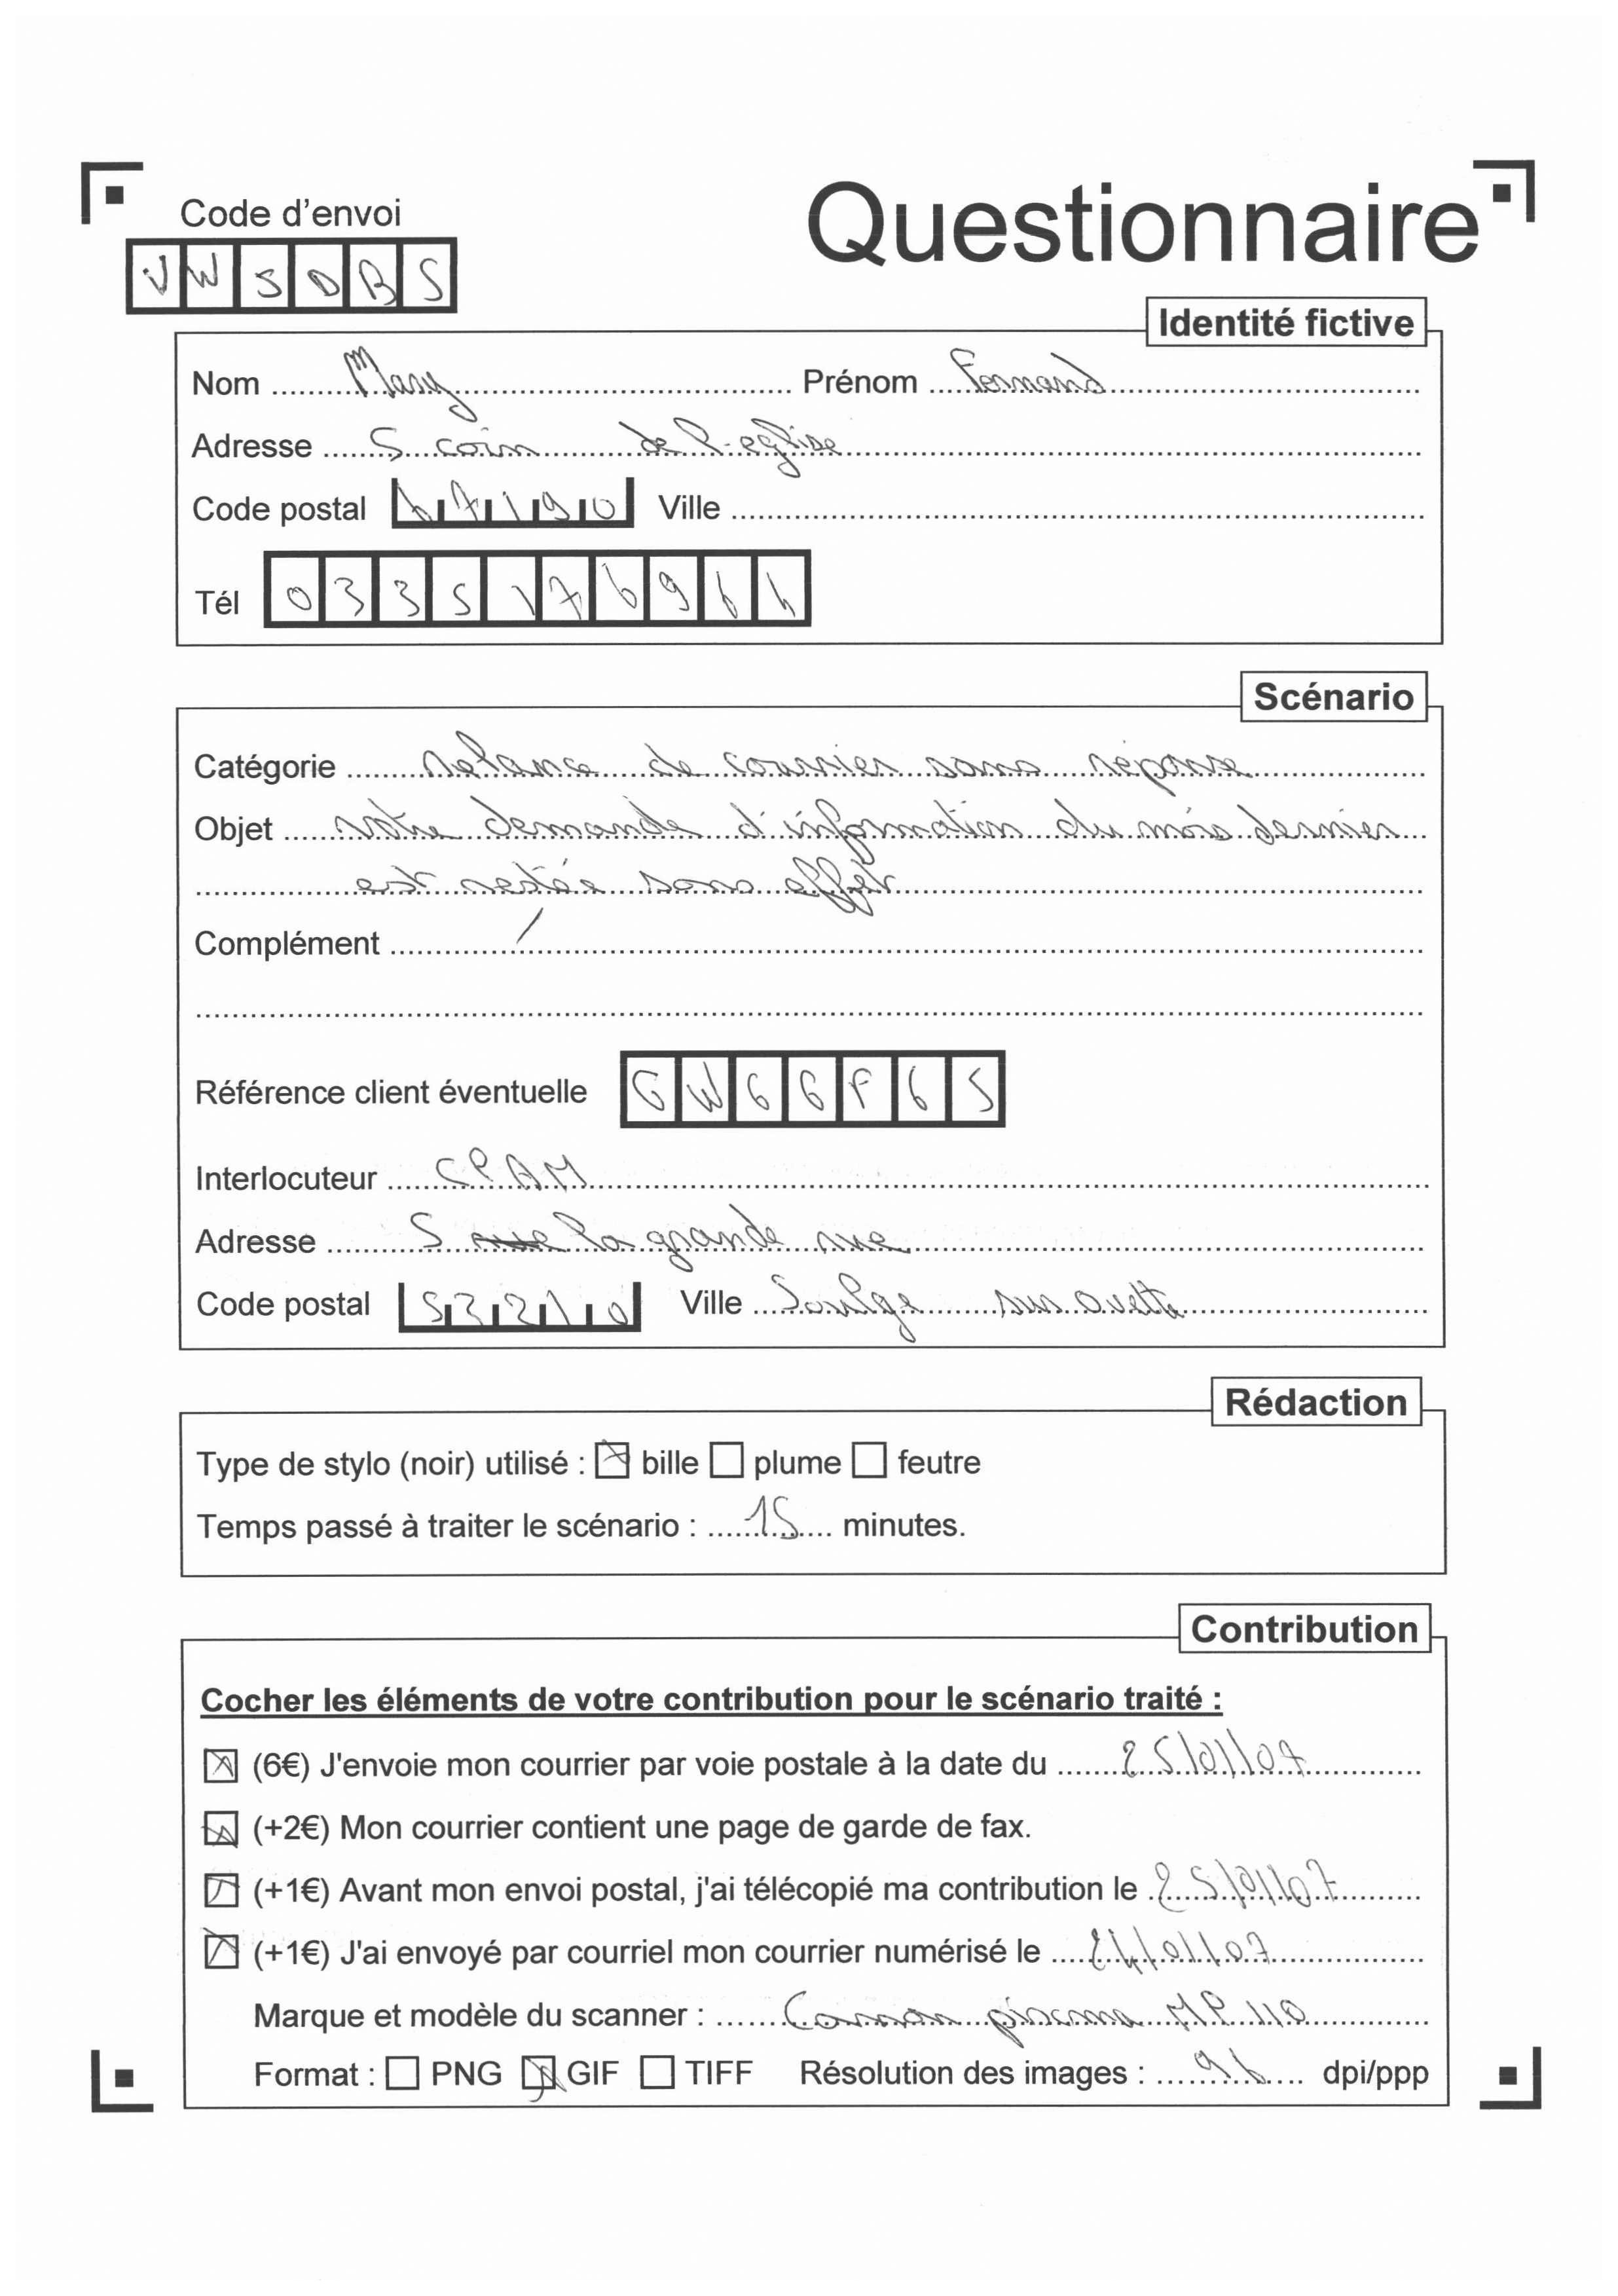 Code d'envoi
Questionnaire
VWSDBS
Identité fictive
Nom Mary Prénom Fernand
Adresse 5 coin de l'eglise
Code postal 67190 Ville
Tél 0335176966
Scénario
Catégorie relance de courrier sans réponse
Objet votre demande d'information du mois dernier
est restée sans effet
Complément /
Référence client éventuelle GWGGF65
Interlocuteur CPAM
Adresse 5 la grande rue
Code postal 53210 Ville Soulge sur ouette
Rédaction
Type de stylo (noir) utilisé : bille plume feutre
Temps passé à traiter le scénario : 15 minutes.
Contribution
Cocher les éléments de votre contribution pour le scénario traité :
(6€) J'envoie mon courrier par voie postale à la date du 25/01/07
(+2€) Mon courrier contient une page de garde de fax.
(+1€) Avant mon envoi postal, j'ai télécopié ma contribution le 25/01/07
(+1€) J'ai envoyé par courriel mon courrier numérisé le 24/01/07
Marque et modèle du scanner : Canon pixma MP 110
Format : PNG GIF TIFF Résolution des images : 96 dpi/ppp